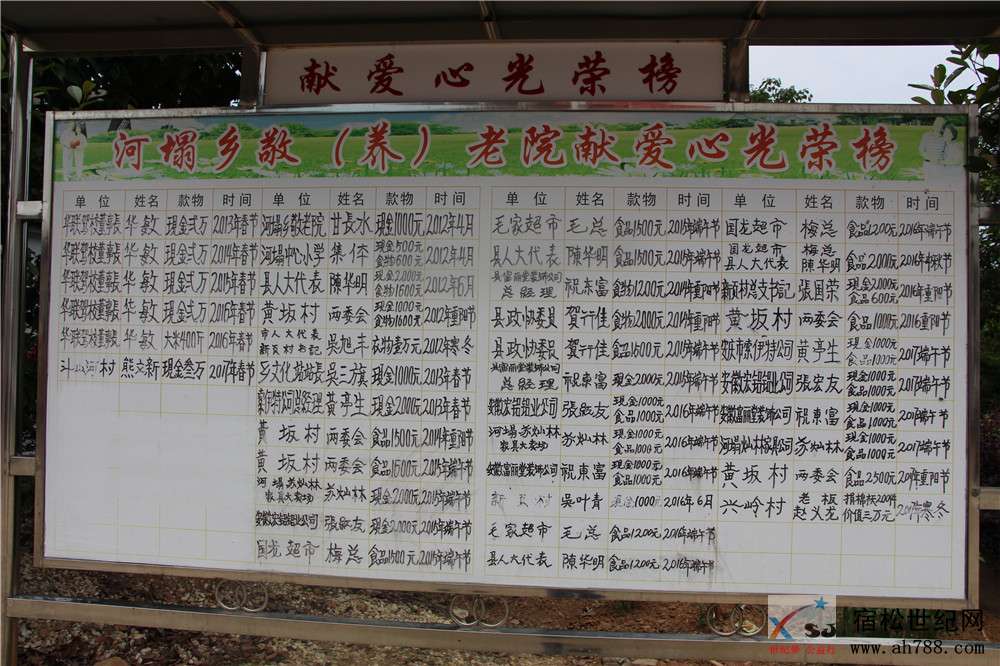 献爱心光荣榜
河塌乡敬（养）老院献爱心光荣榜
单位 姓名 款物 时间 单位 姓名 款物 时间 单位 姓名 款物 时间 单位 姓名 款物 时间
华敏 现金弍万 2013年春节 河塌乡敬老院 甘長水 现金1000元 2012年4月 毛家超市 毛总 食品1500元 2015年端午节 国龙超市 梅总 食品1200元 2016年端午节
华敏 现金弍万 2014年春节 河塌中心小学 集体 现金500元 食物600元 2012年4月 县人大代表 陳华明 食品1500元 2015年端午节 国龙超市 县人大代表 梅总 陳华明 食品2000元
华敏 现金弍万 2015年春节 县人大代表 陳华明 现金2000元 食物1600元 2012年6月 县富丽堂装饰公司 总经理 祝东富 食物1200元 2014年重阳节 張国荣 现金2000元 食品600元 2016年重阳节
华敏 现金弍万 2016年春节 黄坂村 两委会 现金1000元 食物1600元 2012年重阳节 县政协委员 賀行佳 食物2000元 2014年重阳节 黄坂村 两委会 食品1000元 2016重阳节
华敏 大米400斤 2016年春节 市人大代表 吴旭丰 衣物壹万元 2012年寒冬 县政协委员 賀行佳 食品1500元 2015年端午节 黄亭生 现金1000元 食品1000元 2017端午节
斗山河村 熊立新 现金叁万 2017年春节 乡文化站站長 吴三旗 现金1000元 2013年春节 总经理 祝東富 现金2000元 2015年端午节 張宏友 现金1000元 食品1000元 2017端午节
黄亭生 现金2000元 2013年春节 安徽宏铝铝业公司 張宏友 现金1000元 食品1000元 2016年端午节 安徽富丽堂装饰公司 祝東富 现金1000元 食品1000元 2017端午节
黄坂村 两委会 食品1500元 2014年重阳节 河塌苏灿林 家具大卖场 苏灿林 现金1000元 食品1000元 2016年端午节 河塌灿林家具公司 苏灿林 现金1000元 食品1000元 2017端午节
黄坂村 两委会 食品1500元 2015年端午节 安徽富丽堂装饰公司 祝東富 现金1000元 食品1000元 2016年端午节 黄坂村 两委会 食品2500元 2017年重阳节
河塌苏灿林 家具大卖场 苏灿林 现金2000元 2015年端午节 吴叶青 1000元 2016年6月 兴岭村 老板 赵义龙 价值三万元
安徽宏铝铝业公司 張宏友 现金2000元 2015年端午节 毛家超市 毛总 食品1200元 2016年端午节
国龙超市 梅总 食品1500元 2015年端午节 县人大代表 陳华明 食品1200元 2016年端午节
宿松世纪网
世纪缘 公益社
www.ah788.com